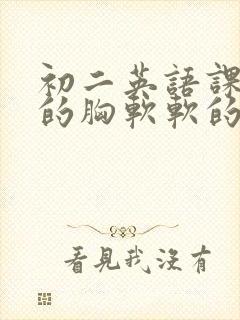 初二英語課
的胸軟軟的
看見我沒有